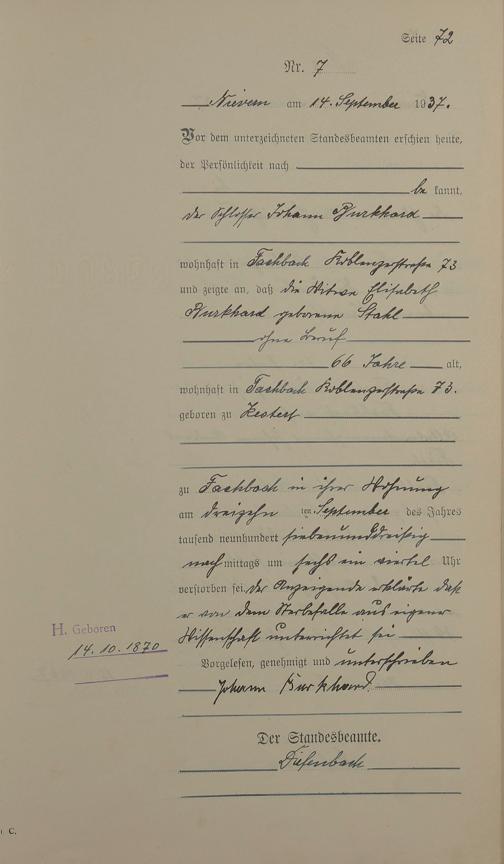 Seite 72
Nr. 7
Nievern am 14. September 1937.
Vor dem unterzeichneten Standesbeamten erschien heute,
der Persönlichkeit nach
be kannt,
der Schlosser Johann Burkhard
wohnhaft in Fachbach Koblenzerstraße 73
und zeigte an, daß die Witwe Elisabeth
Burkhard geborene Stahl
ohne Beruf
66 Jahre alt,
wohnhaft in Fachbach Koblenzerstraße 73.
geboren zu Kestert
zu Fachbach in ihrer Wohnung
am dreizehn ten September des Jahres
tausend neunhundert siebenunddreißig
nach mittags um sechs ein viertel Uhr
verstorben sei, der Anzeigende erklärte daß
er von dem Sterbefalle aus eigener
Wissenschaft unterrichtet sei
H. Geboren
14.10.1870
Vorgelesen, genehmigt und unterschrieben
Johann Burkhard
Der Standesbeamte.
Diefenbach
C.